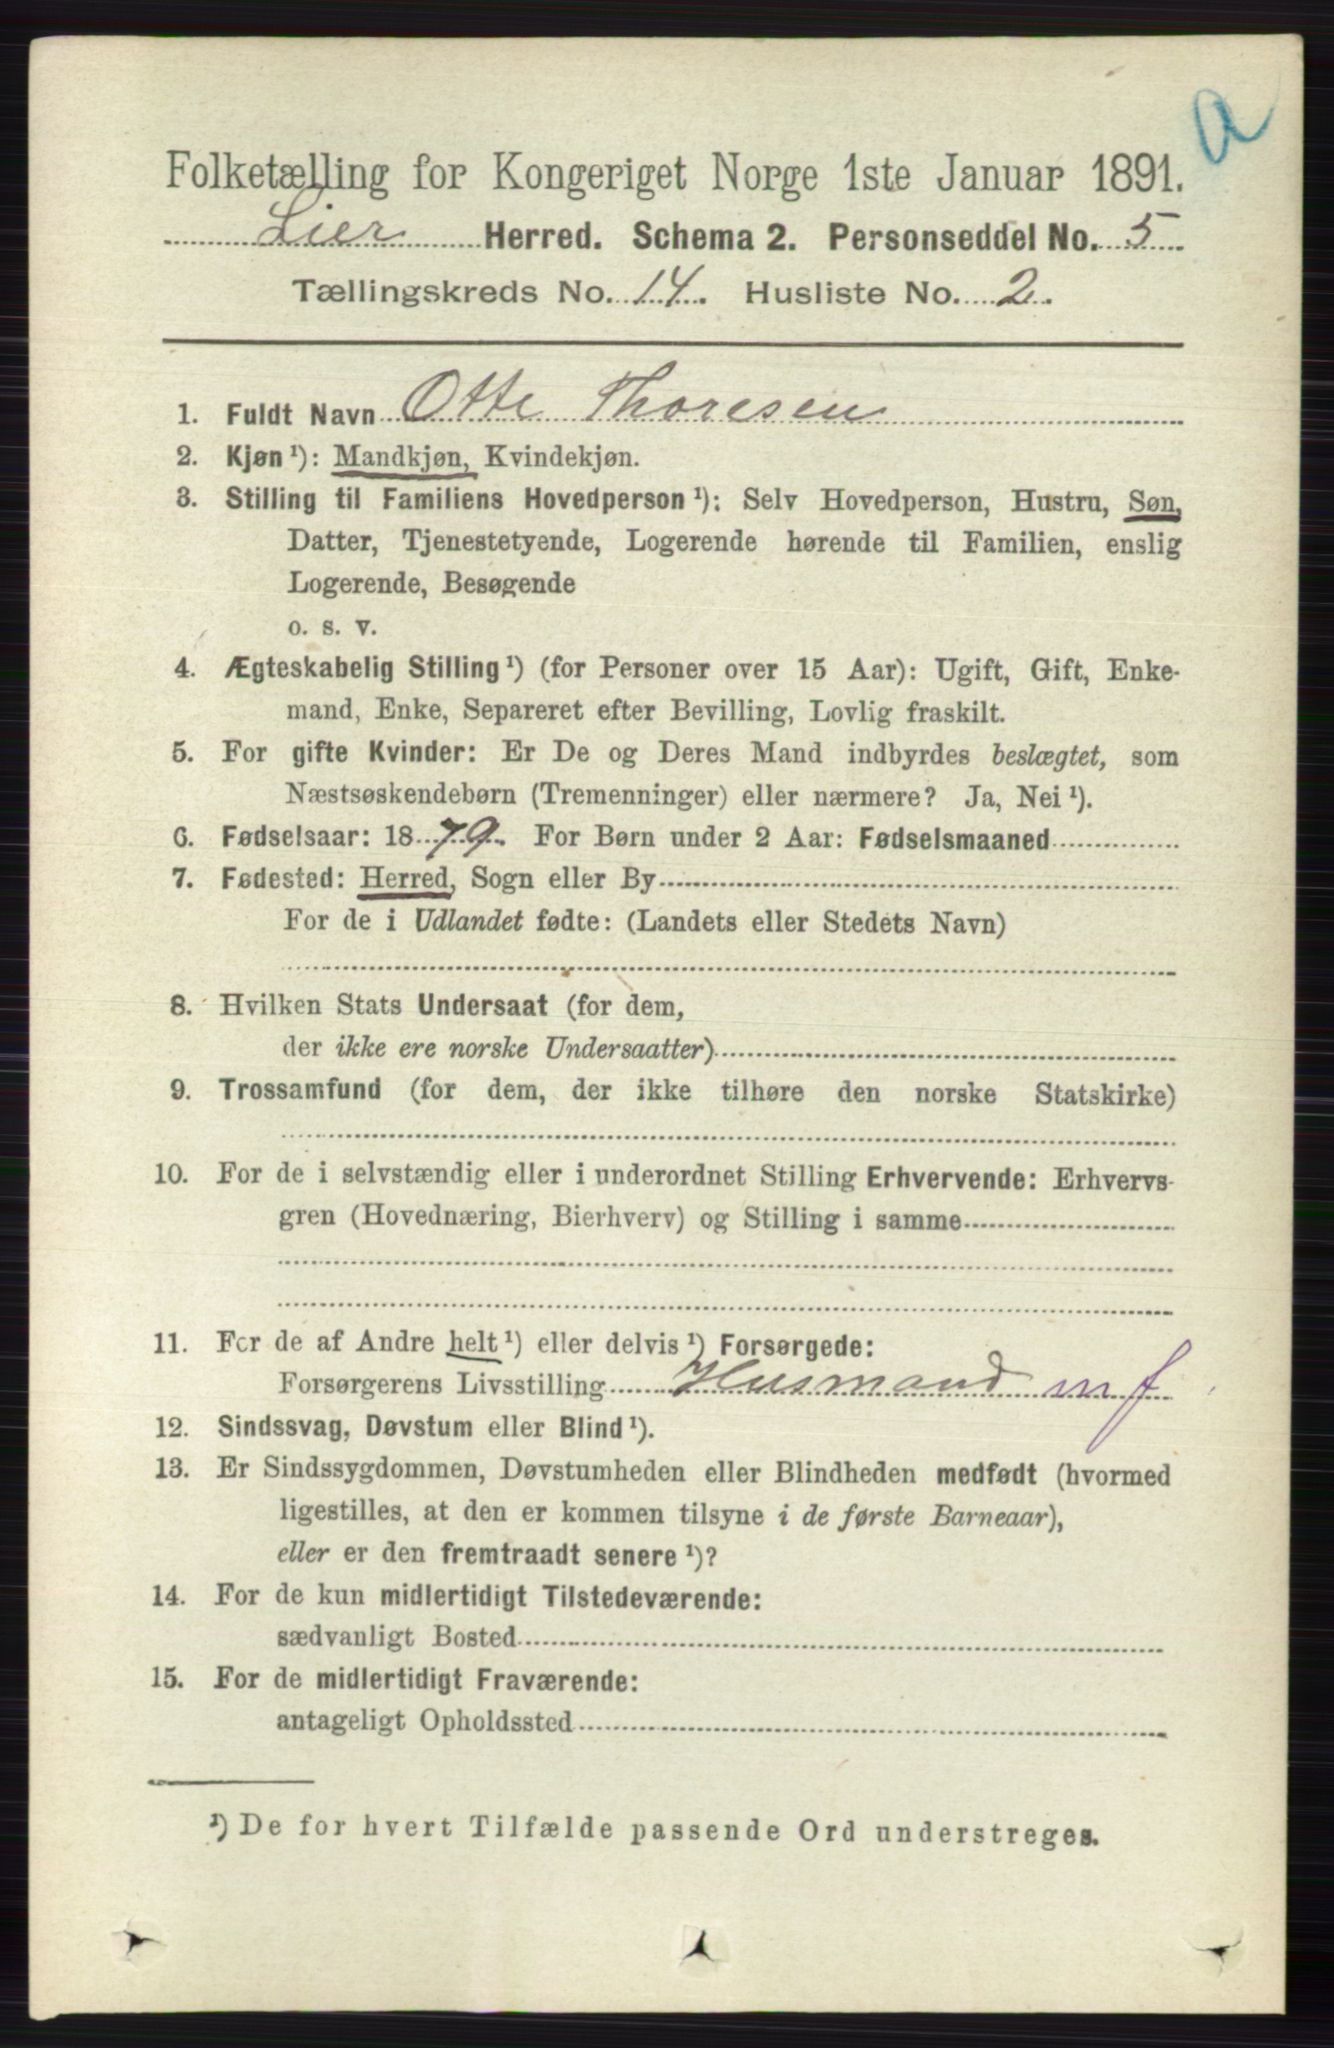 a
Folketælling for Kongeriget Norge 1ste Januar 1891.
Lier Herred. Schema 2. Personseddel No. 5
Tællingskreds No. 14. Husliste No. 2.
1. Fuldt Navn Otte Thoresen
2. Kjøn ¹): Mandkjøn, Kvindekjøn.
3. Stilling til Familiens Hovedperson ¹): Selv Hovedperson, Hustru, Søn,
Datter, Tjenestetyende, Logerende hørende til Familien, enslig
Logerende, Besøgende
o. s. v.
4. Ægteskabelig Stilling ¹) (for Personer over 15 Aar): Ugift, Gift, Enke-
mand, Enke, Separeret efter Bevilling, Lovlig fraskilt.
5. For gifte Kvinder: Er De og Deres Mand indbyrdes beslægtet, som
Næstsøskendebørn (Tremenninger) eller nærmere? Ja, Nei ¹).
6. Fødselsaar: 1879. For Børn under 2 Aar: Fødselsmaaned
7. Fødested: Herred, Sogn eller By
For de i Udlandet fødte: (Landets eller Stedets Navn)
8. Hvilken Stats Undersaat (for dem,
der ikke ere norske Undersaatter)
9. Trossamfund (for dem, der ikke tilhøre den norske Statskirke)
10. For de i selvstændig eller i underordnet Stilling Erhvervende: Erhvervs-
gren (Hovednæring, Bierhverv) og Stilling i samme
11. For de af Andre helt ¹) eller delvis ¹) Forsørgede:
Forsørgerens Livsstilling Husmand m f
12. Sindssvag, Døvstum eller Blind ¹).
13. Er Sindssygdommen, Døvstumheden eller Blindheden medfødt (hvormed
ligestilles, at den er kommen tilsyne i de første Barneaar),
eller er den fremtraadt senere ¹)?
14. For de kun midlertidigt Tilstedeværende:
sædvanligt Bosted
15. For de midlertidigt Fraværende:
antageligt Opholdssted
¹) De for hvert Tilfælde passende Ord understreges.